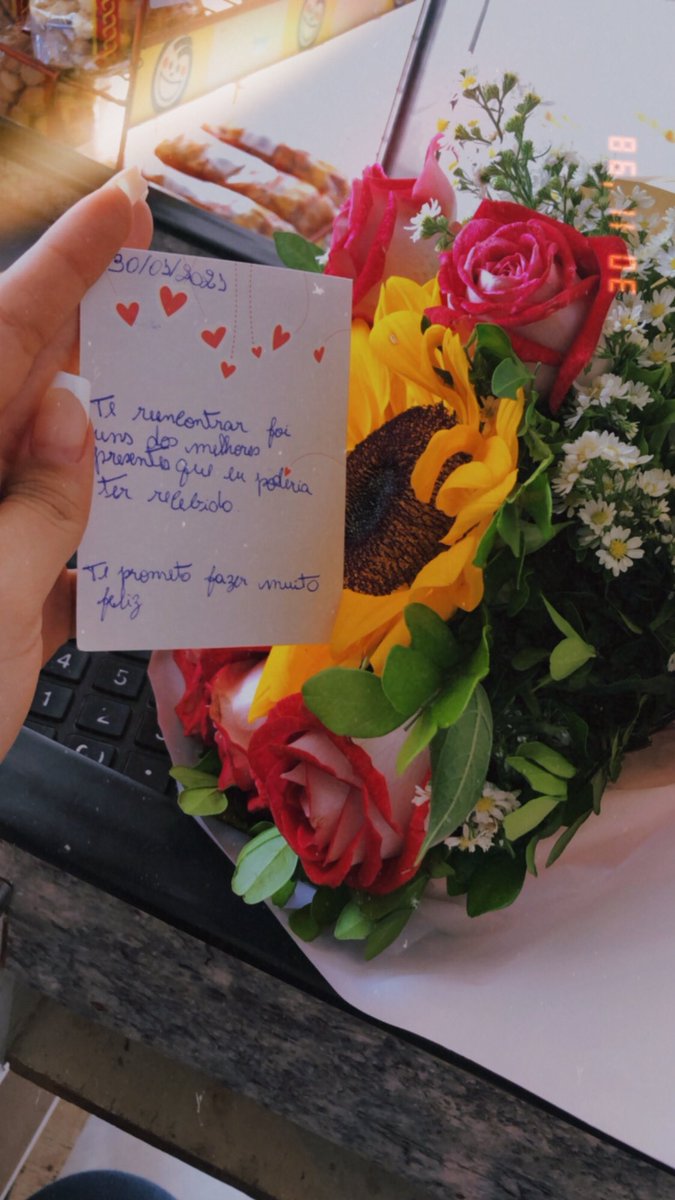 30/03/2021
Te reencontrar foi
uns dos melhores
presentes que eu poderia
ter recebido
Te prometo fazer muito
feliz
30 11 '98
4
5
1
2
0